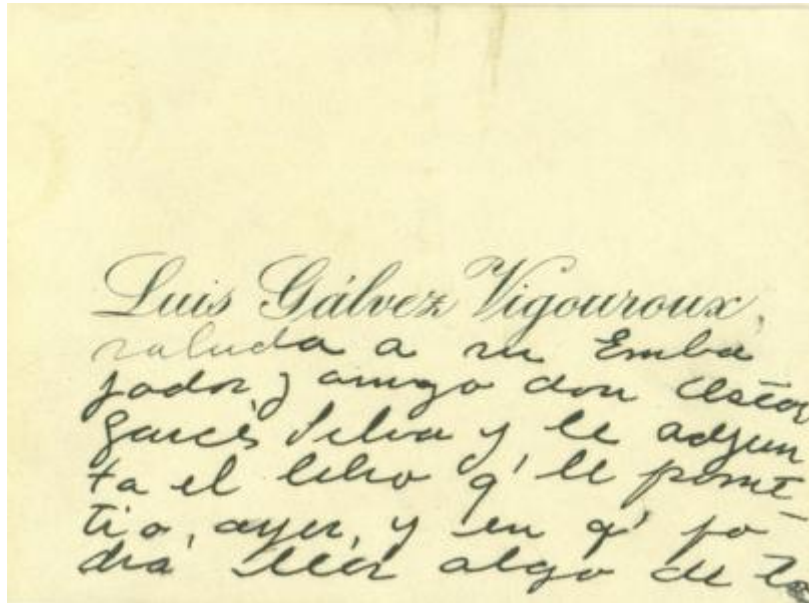 Luis Gálvez Vigouroux,
saluda a su Emba
jador y amigo don
Garcés Silva y le adjun
ta el libro q' le prome
tio, ayer, y en q' po-
drá leer algo de